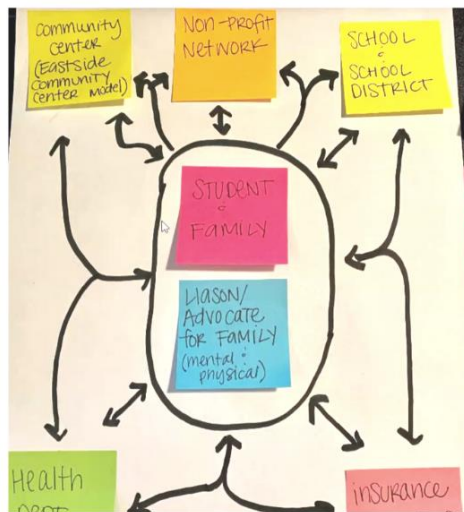 community
center
(Eastside
community
center model)
NON-PROFIT
NETWORK
SCHOOL
&
SCHOOL
DISTRICT
STUDENT
&
FAMILY
LIASON/
ADVOCATE
FOR FAMILY
(mental &
physical)
Health
DEPT
insurance